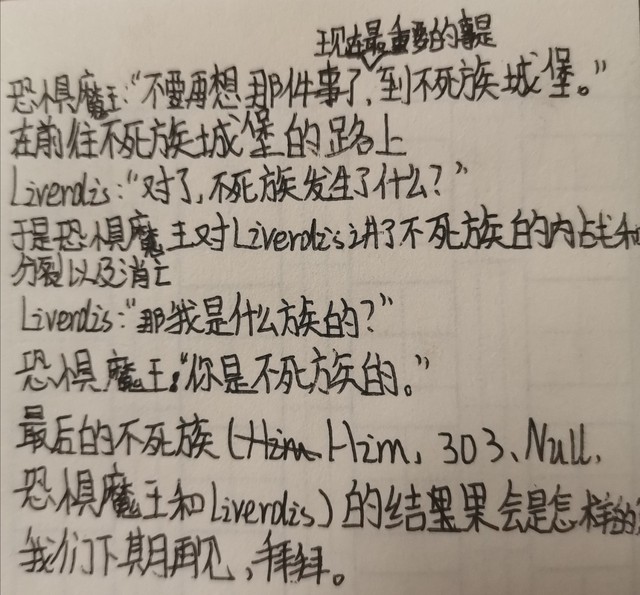 现在最重要的事是
恐惧魔王:“不要再想那件事了,到不死族城堡。”
在前往不死族城堡的路上
Liverdis:“对了,不死族发生了什么?”
于是恐惧魔王对Liverdis讲了不死族的内战和
分裂以及消亡
Liverdis:“那我是什么族的?”
恐惧魔王:“你是不死族的。”
最后的不死族(Him、303、Null、
恐惧魔王和Liverdis)的结果会是怎样的
我们下期再见,拜拜。